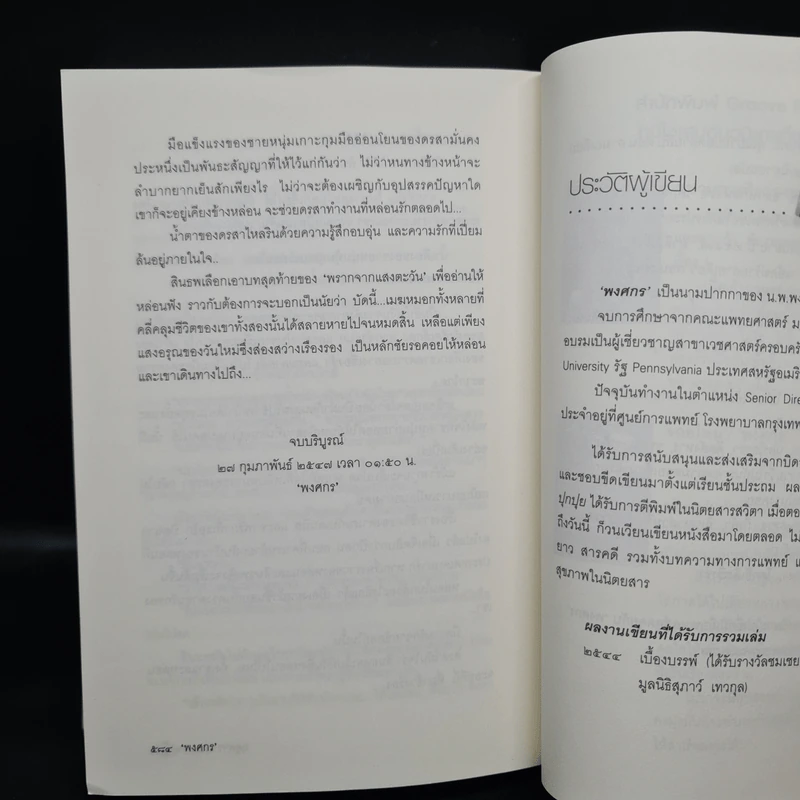 มือแข็งแรงของชายหนุ่มเกาะกุมมืออ่อนโยนของดรสามั่นคง
ประหนึ่งเป็นพันธะสัญญาที่ให้ไว้แก่กันว่า ไม่ว่าหนทางข้างหน้าจะ
ลำบากยากเย็นสักเพียงไร ไม่ว่าจะต้องเผชิญกับอุปสรรคปัญหาใด
เขาก็จะอยู่เคียงข้างหล่อน จะช่วยดรสาทำงานที่หล่อนรักตลอดไป...
น้ำตาของดรสาไหลรินด้วยความรู้สึกอบอุ่น และความรักที่เปี่ยม
ล้นอยู่ภายในใจ..
สินธพเลือกเอาบทสุดท้ายของ 'พรากจากแสงตะวัน' เพื่ออ่านให้
หล่อนฟัง ราวกับต้องการจะบอกเป็นนัยว่า บัดนี้...เมฆหมอกทั้งหลายที่
คลี่คลุมชีวิตของเขาทั้งสองนั้นได้สลายหายไปจนหมดสิ้น เหลือแต่เพียง
แสงอรุณของวันใหม่ซึ่งส่องสว่างเรืองรอง เป็นหลักชัยรอคอยให้หล่อน
และเขาเดินทางไปถึง...
จบบริบูรณ์
๒๗ กุมภาพันธ์ ๒๕๔๗ เวลา ๐๑:๕๐ น.
'พงศกร'
๕๘๔ 'พงศกร'
ประวัติผู้เขียน
'พงศกร' เป็นนามปากกาของ น.พ.พง
จบการศึกษาจากคณะแพทยศาสตร์ ม
อบรมเป็นผู้เชี่ยวชาญสาขาเวชศาสตร์ครอบครั
University รัฐ Pennsylvania ประเทศสหรัฐอเมริ
ปัจจุบันทำงานในตำแหน่ง Senior Dire
ประจำอยู่ที่ศูนย์การแพทย์ โรงพยาบาลกรุงเทพ
ได้รับการสนับสนุนและส่งเสริมจากบิด
และชอบขีดเขียนมาตั้งแต่เรียนชั้นประถม ผล
ปุกปุย ได้รับการตีพิมพ์ในนิตยสารสวิตา เมื่อตอ
ถึงวันนี้ ก็วนเวียนเขียนหนังสือมาโดยตลอด ไม่
ยาว สารคดี รวมทั้งบทความทางการแพทย์ แ
สุขภาพในนิตยสาร
ผลงานเขียนที่ได้รับการรวมเล่ม
๒๕๔๔ เบื้องบรรพ์ (ได้รับรางวัลชมเชย
มูลนิธิสุภาว์ เทวกุล)